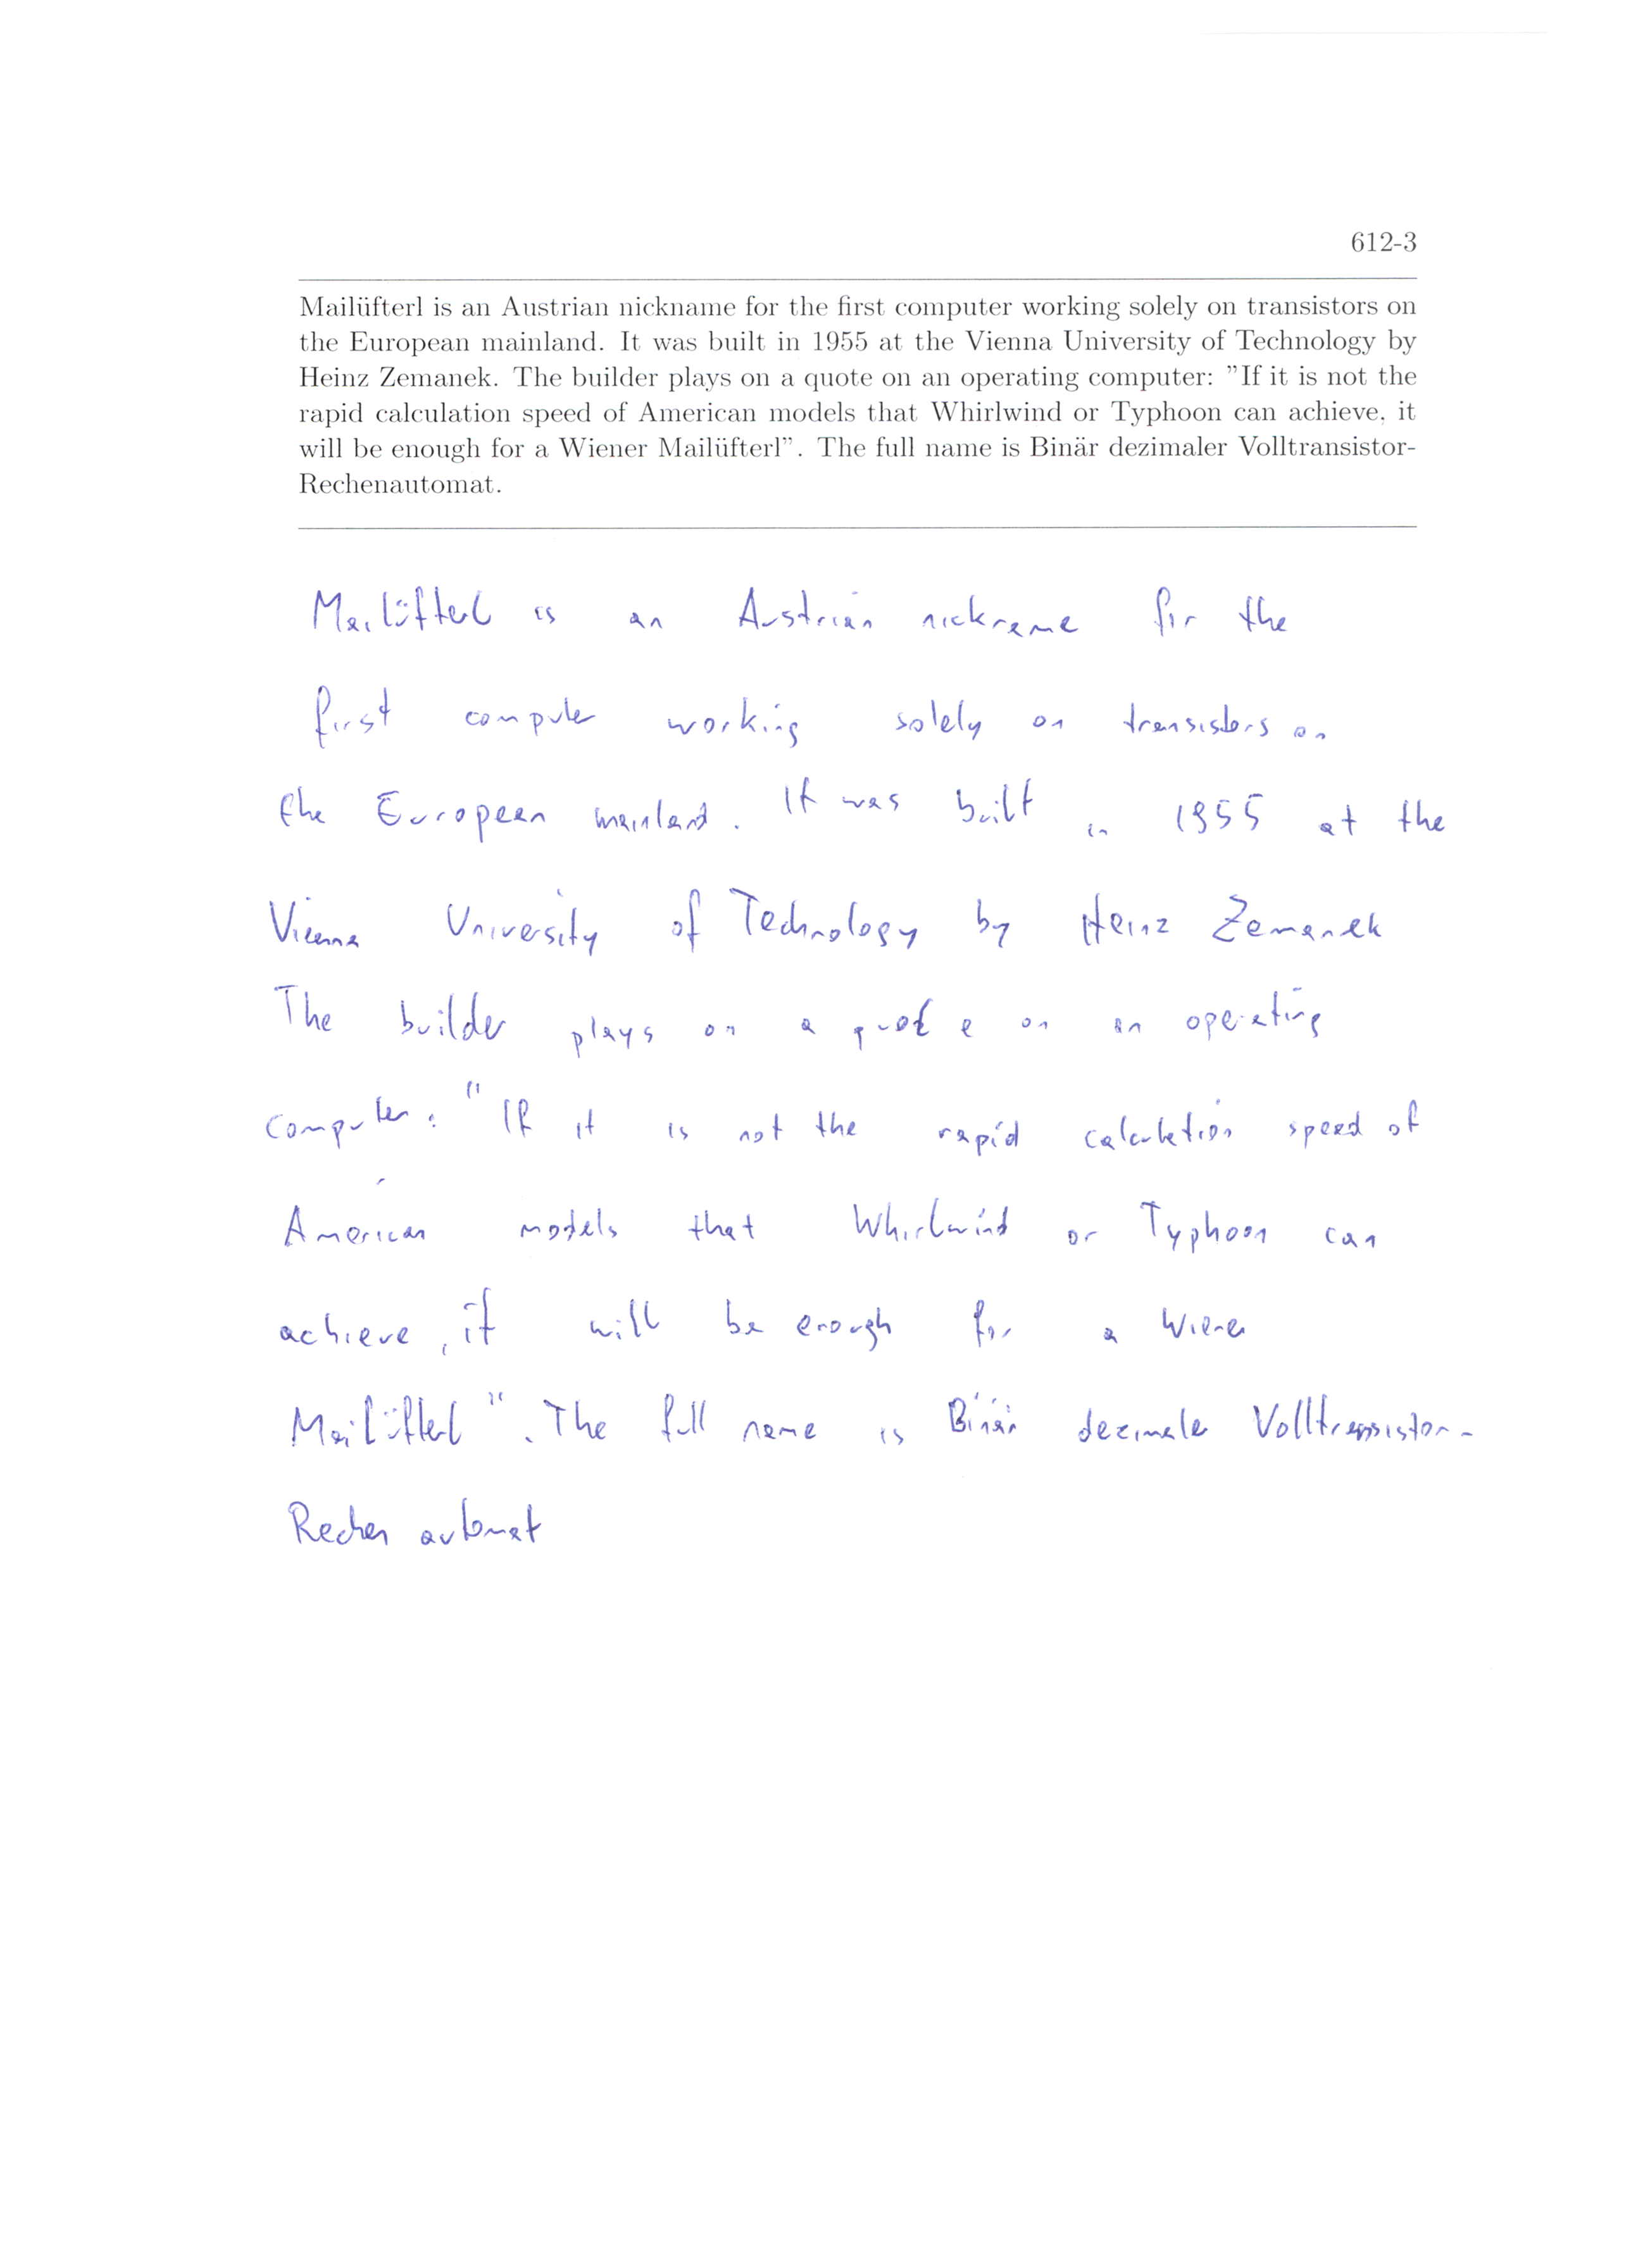 612-3
Mailüfterl is an Austrian nickname for the first computer working solely on transistors on
the European mainland. It was built in 1955 at the Vienna University of Technology by
Heinz Zemanek. The builder plays on a quote on an operating computer: "If it is not the
rapid calculation speed of American models that Whirlwind or Typhoon can achieve, it
will be enough for a Wiener Mailüfterl". The full name is Binär dezimaler Volltransistor-
Rechenautomat.
Mailüfterl is an Austrian nickname for the
first computer working solely on transistors on
the European mainland. It was built in 1955 at the
Vienna University of Technology by Heinz Zemanek
The builder plays on a quote on an operating
computer: "If it is not the rapid calculation speed of
American models that Whirlwind or Typhoon can
achieve, it will be enough for a Wiener
Mailüfterl". The full name is Binär dezimaler Volltransistor-
Rechen automat